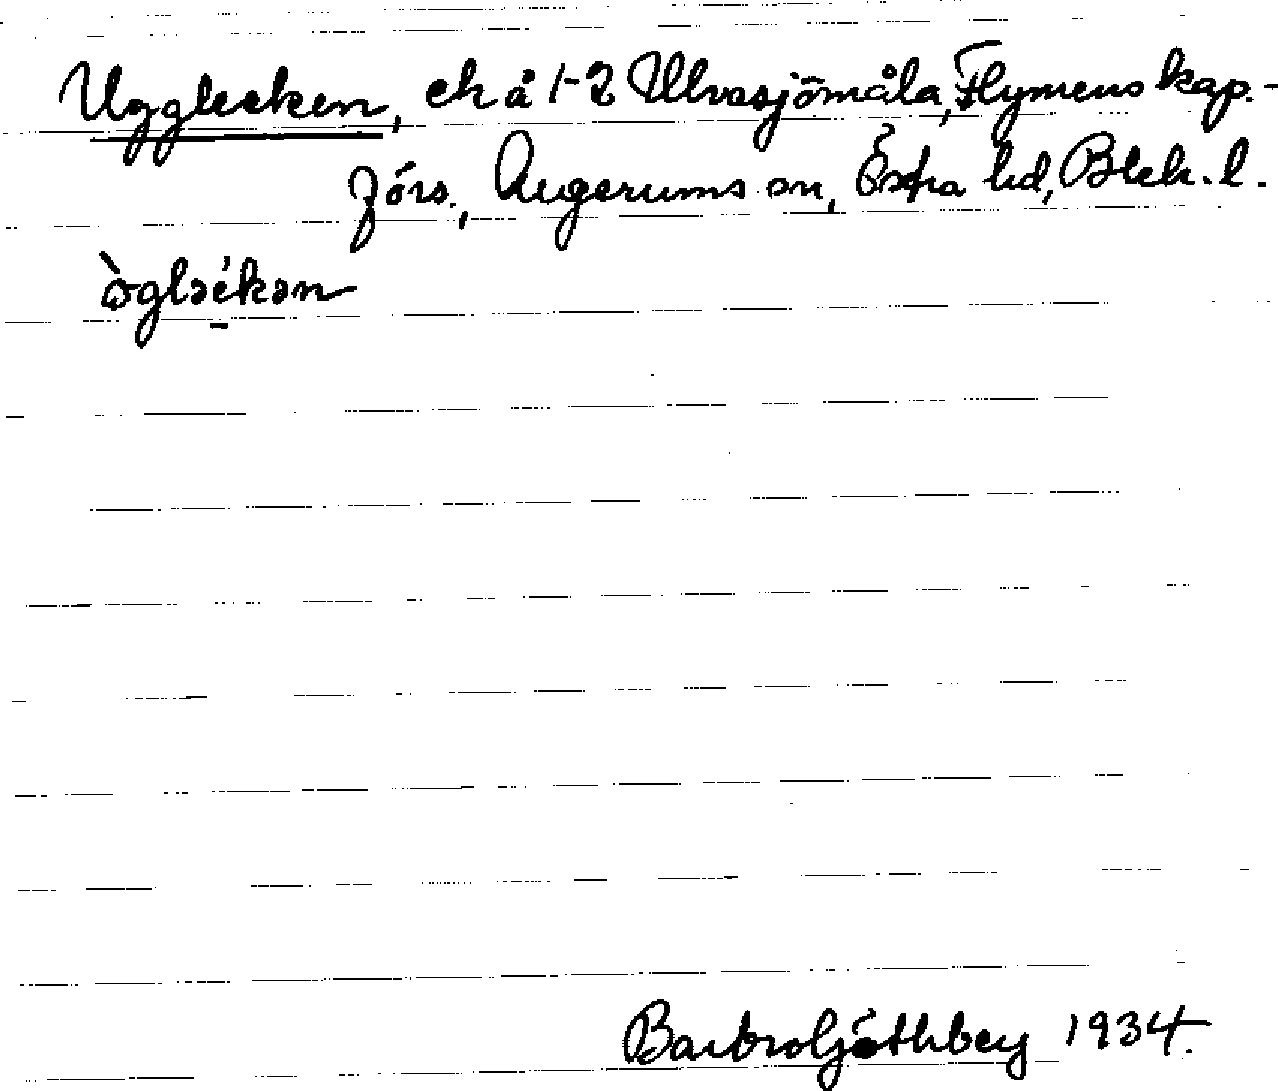 Uggleeken, ek å 1-2 Ulvasjömåla, Flymens kap.-
förs., Augerums sn, Östra hd, Blek. l.
òglaékan
Barbro Göthberg 1934.